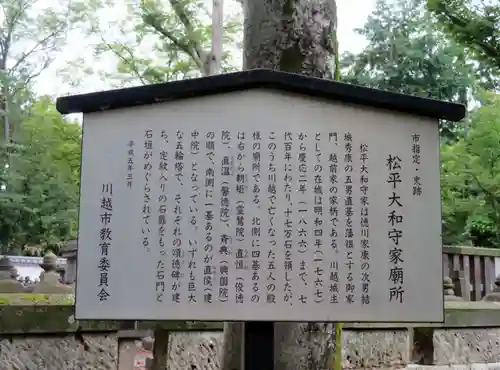 市指定・史跡
松平大和守家廟所
松平大和守家は徳川家康の次男結
城秀康の五男直基を藩祖とする御家
門、越前家の家柄である。川越城主
としての在城は明和四年(一七六七)
から慶応二年(一八六六)まで、七
代百年にわたり、十七万石を領したが、
このうち川越で亡くなった五人の殿
様の廟所である。北側に四基あるの
は右から朝矩(霊鷲院)直恒(俊徳
院)、直温(馨徳院)、斉典(興国院)
の順で、南側に一基あるのが直侯(建
中院)となっている。いずれも巨大
な五輪塔で、それぞれの頌徳碑が建
ち、定紋入りの石扉をもった石門と
石垣がめぐらされている。
平成五年三月
川越市教育委員会